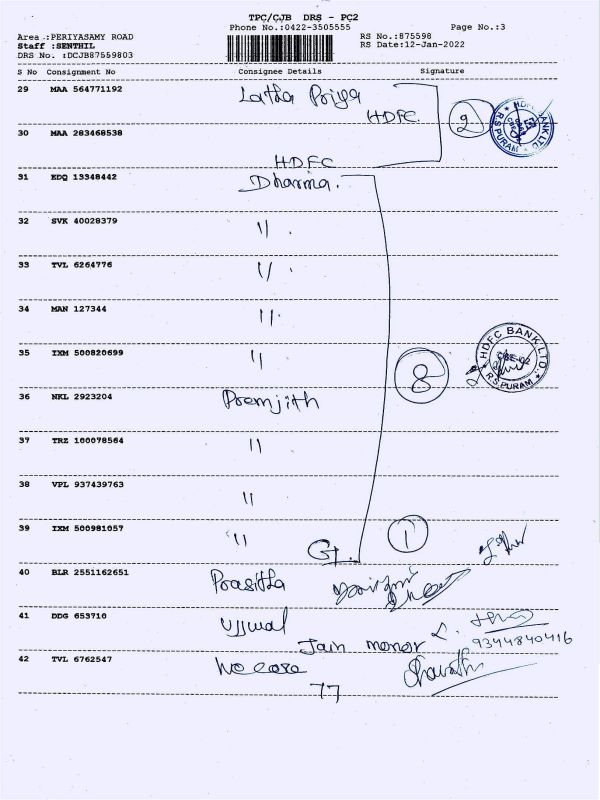 TPC/CJB DRS - PC2
Phone No.:0422-3505555 Page No.:3
Area :PERIYASAMY ROAD RS No.:875598
Staff :SENTHIL RS Date:12-Jan-2022
DRS No. :DCJB87559803
S No Consignment No Consignee Details Signature
29 MAA 564771192 Latha Priya
HDFC. 2
30 MAA 283468538
HDFC
HDFC BANK LTD
R.S.PURAM
31 EDQ 13348442 Dharma.
32 SVK 40028379 〃 .
33 TVL 6264776 〃 .
34 MAN 127344 〃 .
35 IXM 500820699 〃 8
HDFC BANK LTD.,
R.S.PURAM
36 NKL 2923204 Premjith
37 TRZ 100078564 〃
38 VPL 937439763 〃
39 IXM 500981057 〃 1
40 BLR 2551162651 Prasitha
41 DDG 653710 Ujjwal
Jain manor 9344840416
42 TVL 6762547 We care
77 Bharathi